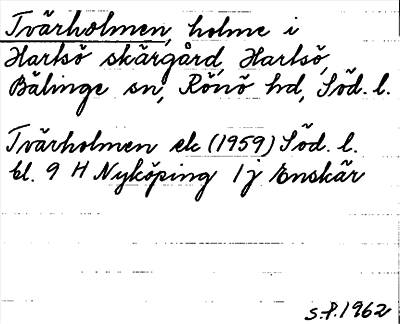 Tvärholmen, holme i
Hartsö skärgård, Hartsö,
Bälinge sn, Rönö hd, Söd. l.
Tvärholmen ek (1959) Söd. l.
bl. 9 H Nyköping 1 j Enskär
S.P. 1962